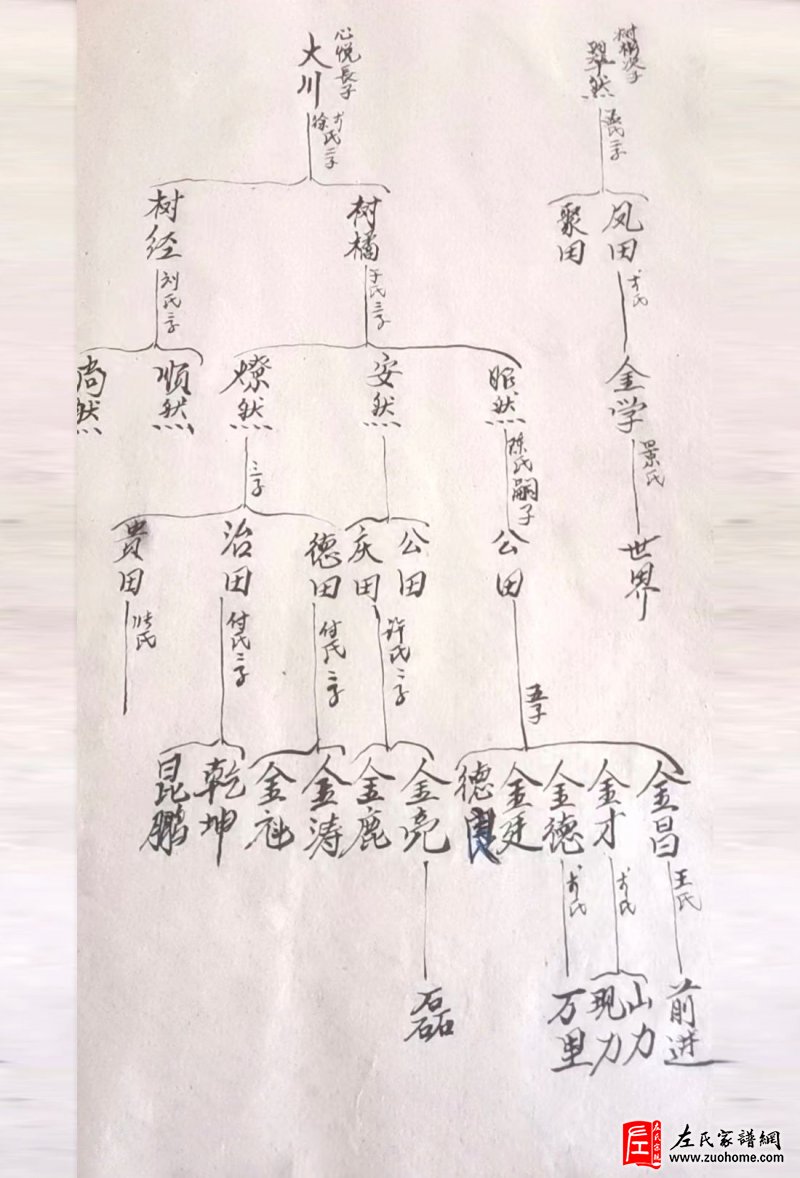 心悦長子
大川
徐氏二子
树楠次子
翠然
聚田
凤田
树经
刘氏二子
树橘
于氏三子
金学
景氏
世界
尚然
順然
燎然
三子
安然
昭然
陈氏嗣子
貴田
张氏
治田
付氏二子
德田
付氏二子
庆田
许氏二子
公田
公田
五子
昆鹏
乾坤
金社
金涛
金鹿
金亮
磊
德良
金廷
金德
万里
金才
现力
山力
金昌
王氏
前进
左氏家譜網
www.zuohome.com